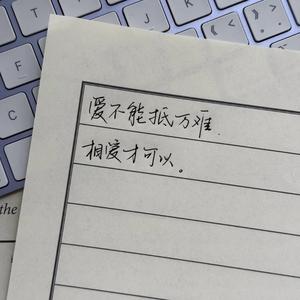 爱不能抵万难.
相爱才可以。
T
F
G
C
V
the